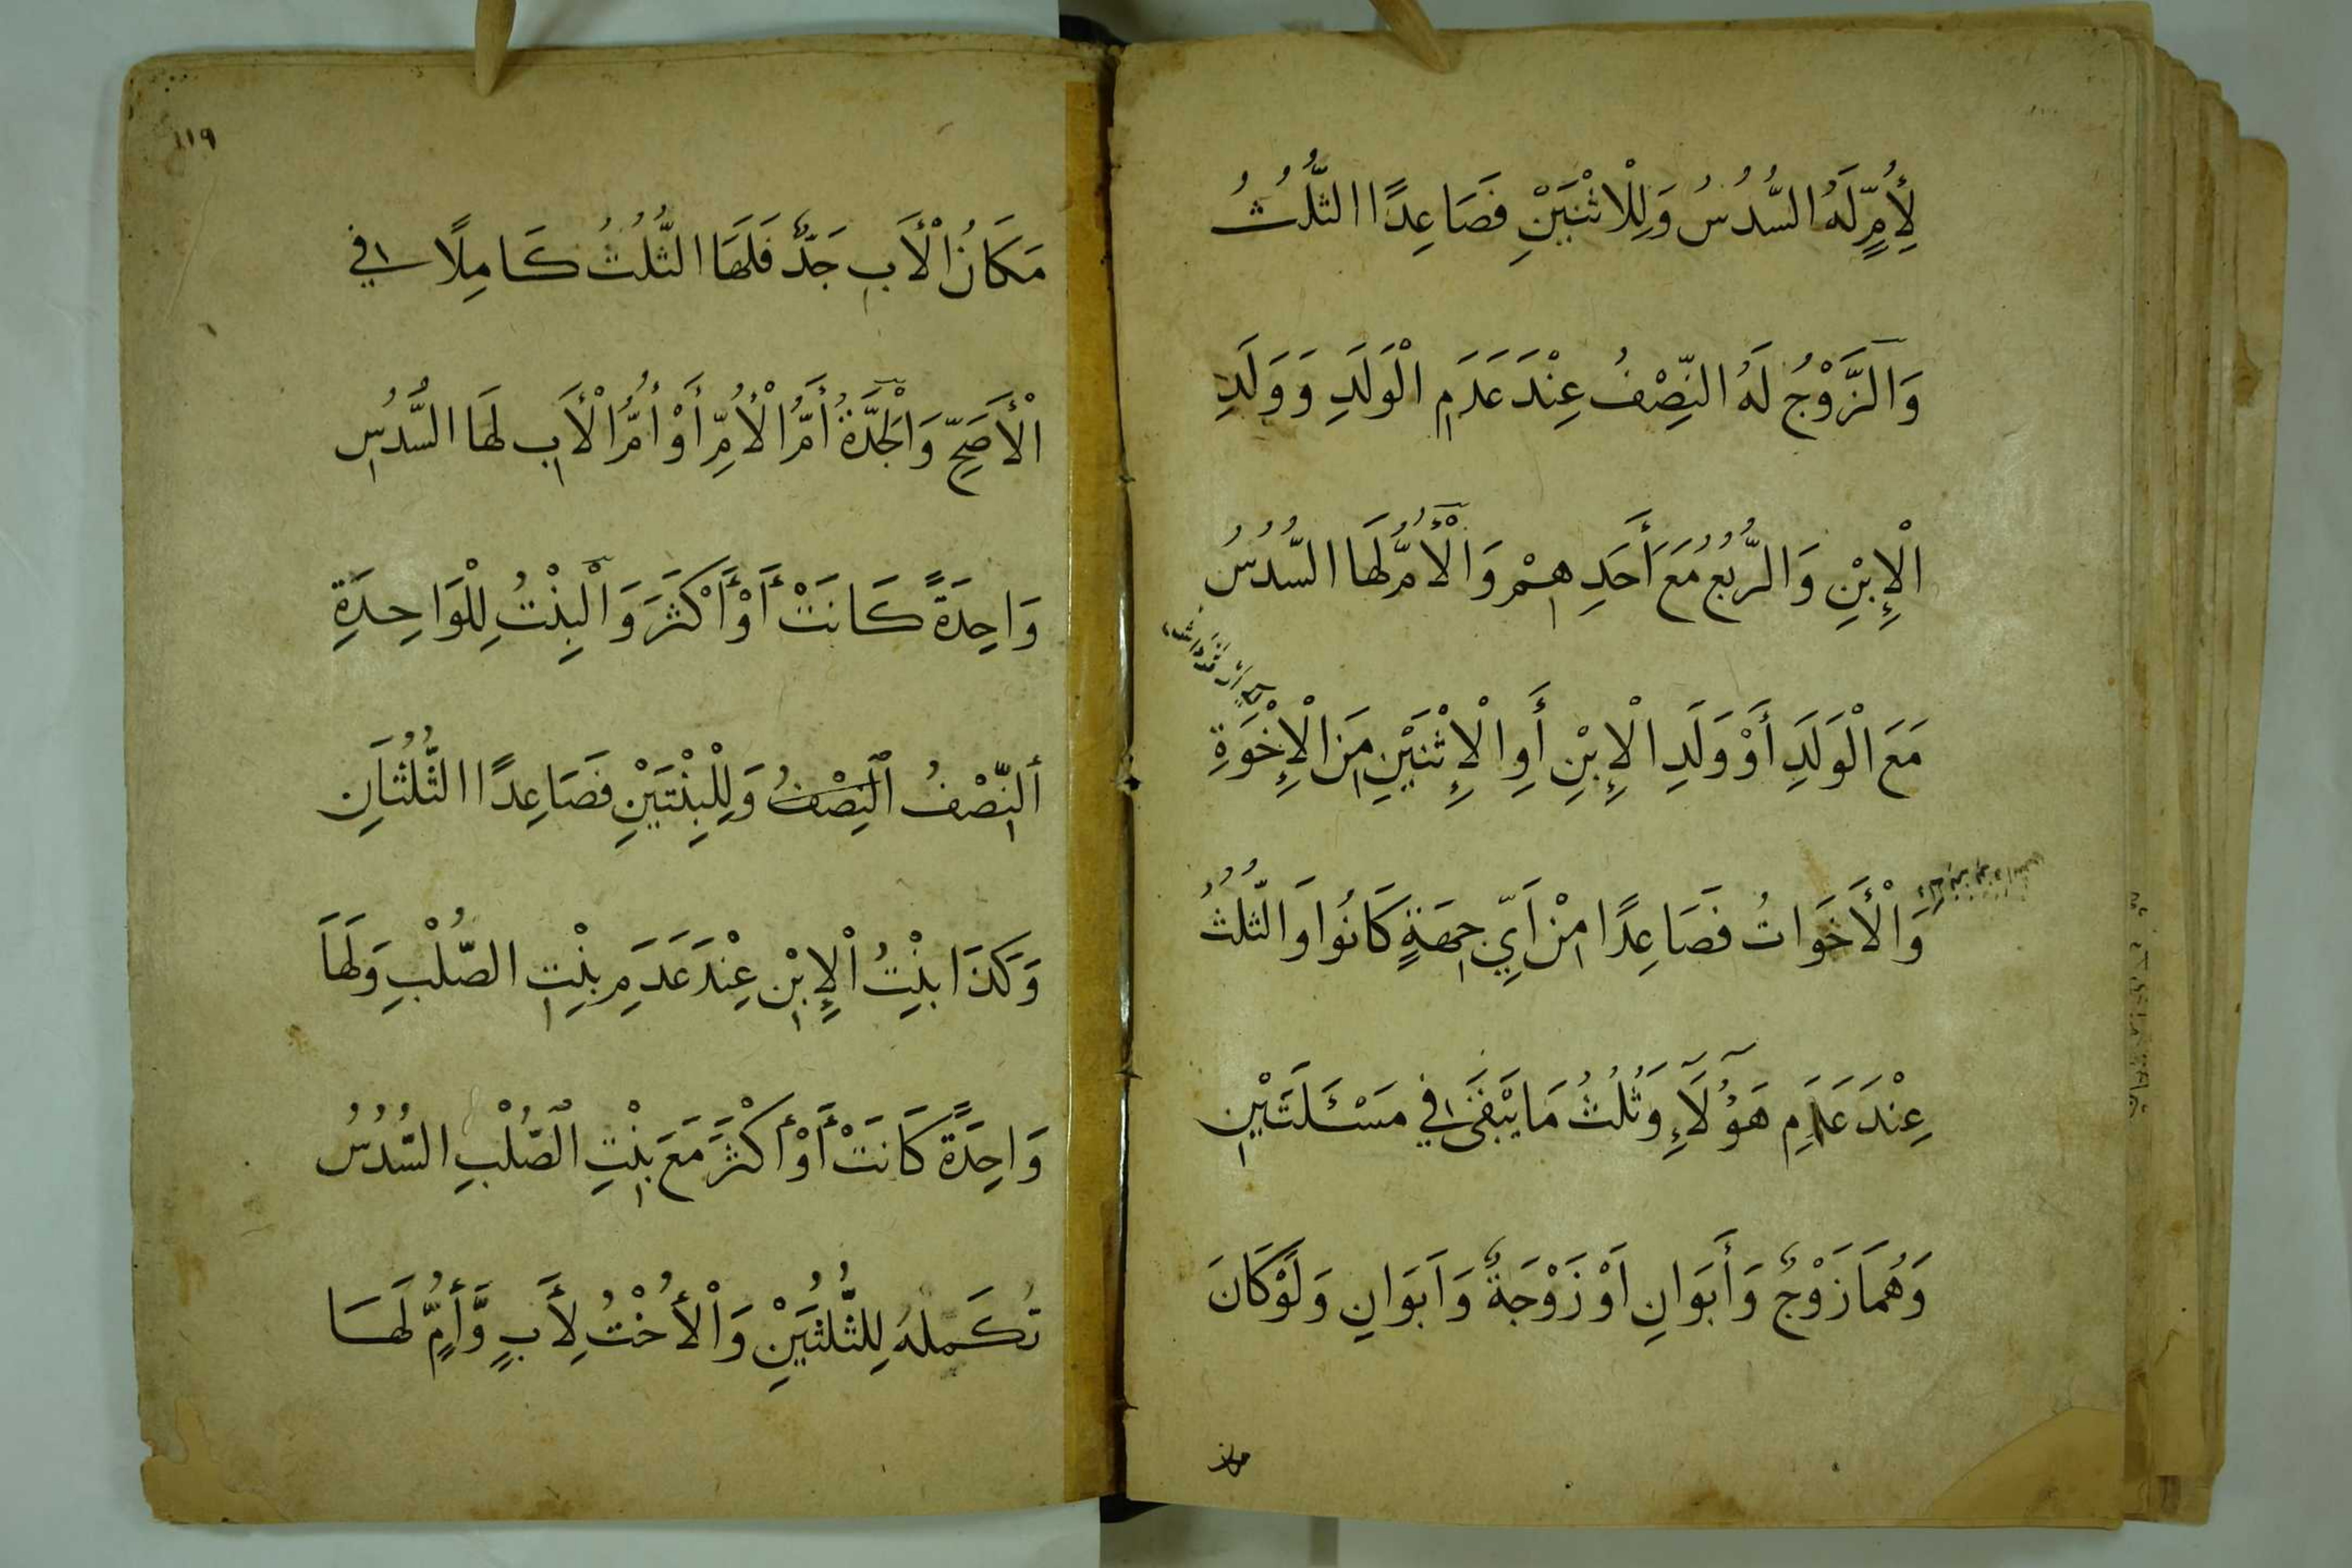 لِأُمٍّ لَهُ السُّدُسُ وَلِلْاثْنَيْنِ فَصَاعِدًا الثُّلُثُ
وَالزَّوْجُ لَهُ النِّصْفُ عِنْدَ عَدَمِ الْوَلَدِ وَوَلَدِ
الْإِبْنِ وَالرُّبُعُ مَعَ أَحَدِهِمْ وَالْأُمُّ لَهَا السُّدُسُ
مَعَ الْوَلَدِ أَوْ وَلَدِ الْإِبْنِ أَوِ الْإِثْنَيْنِ مِنَ الْإِخْوَةِ
وَالْأَخَوَاتُ فَصَاعِدًا مِنْ اَيِّ جِهَةٍ كَانُوا وَالثُّلُثُ
عِنْدَ عَدَمِ هَؤُلَآءِ وَثُلُثُ مَا يَبْقَى فِي مَسْئَلَتَيْنِ
وَهُمَا زَوْجٌ وَأَبَوَانِ اَوْ زَوْجَةٌ وَاَبَوَانِ وَلَوْ كَانَ
مكان
١١٩
مَكَانُ الْأَبِ جَدٌّ فَلَهَا الثُّلُثُ كَامِلًا فِي
الْأَصَحِّ وَالْجَدَّةُ أُمُّ الْأُمِّ أَوْ أُمُّ الْأَبِ لَهَا السُّدُسِ
وَاحِدَةً كَانَتْ أَوْ أَكْثَرَ وَالْبِنْتُ لِلْوَاحِدَةِ
ألنِّصْفُ النِصْفُ وَلِلْبِنْتَيْنِ فَصَاعِدًا الثُّلُثَانِ
وَكَذَا بِنْتُ الْإِبْنِ عِنْدَ عَدَمِ بِنْتِ الصُّلْبِ وَلَهَا
وَاحِدَةً كَانَتْ أَوْ أَكْثَرَ مَعَ بِنْتِ الصُّلْبِ السُّدُسُ
تُكَمِلهُ لِلثُّلُثَيْنِ وَالْأُخْتُ لِأَبٍ وَّأُمٍّ لَهَا